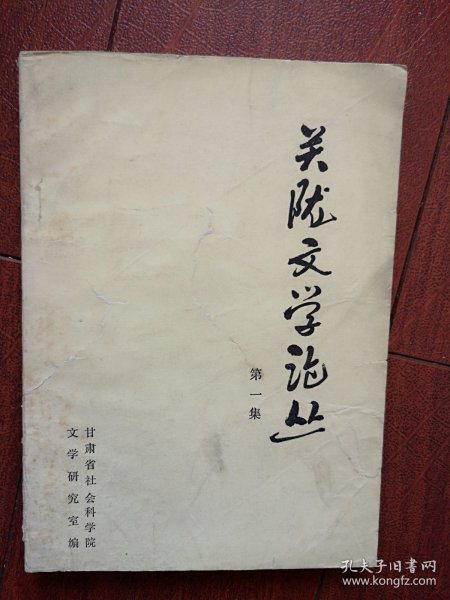 关陇文学论丛
第一集
甘肃省社会科学院
文学研究室编
孔夫子旧书网
www.kongfz.com